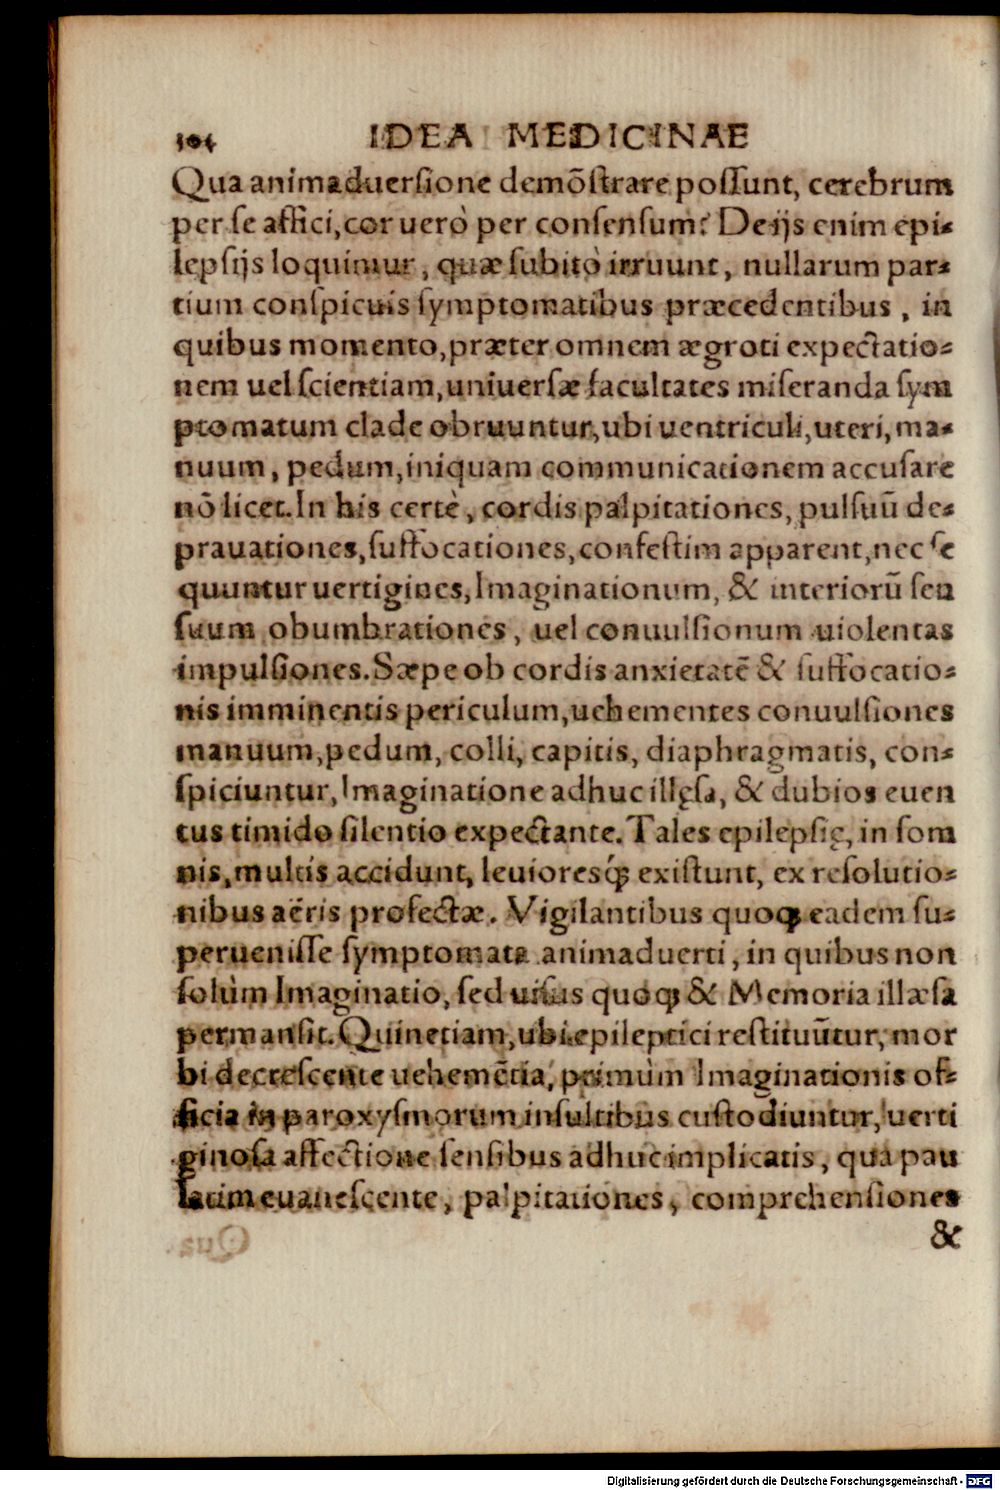 104 IDEA MEDICINAE
Qua animaduersione demõstrare possunt, cerebrum
per se affici, cor uerò per consensum? De ijs enim epi-
lepsijs loquimur, quæ subitò irruunt, nullarum par-
tium conspicuis symptomatibus præcedentibus, in
quibus momento, præter omnem ægroti expectatio-
nem uel scientiam, uniuersæ facultates miseranda sym
ptomatum clade obruuntur, ubi uentriculi, uteri, ma-
nuum, pedum, iniquam communicationem accusare
nõ licet. In his certè, cordis palpitationes, pulsuũ de-
prauationes, suffocationes, confestim apparent, nec se
quuntur uertigines, Imaginationum, & interiorũ sen
suum obumbrationes, uel conuulsionum uiolentas
impulsiones. Sæpe ob cordis anxietatẽ & suffocatio-
nis imminentis periculum, uehementes conuulsiones
manuum, pedum, colli, capitis, diaphragmatis, con-
spiciuntur, Imaginatione adhuc illęsa, & dubios euen
tus timido silentio expectante. Tales epilepsię, in som
nis, multis accidunt, leuioresq́; existunt, ex resolutio-
nibus aëris profectæ. Vigilantibus quoq; eadem su-
peruenisse symptomata animaduerti, in quibus non
solùm Imaginatio, sed uisus quoq; & Memoria illæsa
permansit. Quinetiam, ubi epileptici restituũtur, mor
bi decrescente uehemẽtia, primùm Imaginationis of-
ficia in paroxysmorum insultibus custodiuntur, uerti
ginosa affectione sensibus adhuc implicatis, qua pau
latim euanescente, palpitationes, comprehensiones
&
Digitalisierung gefördert durch die Deutsche Forschungsgemeinschaft - DFG